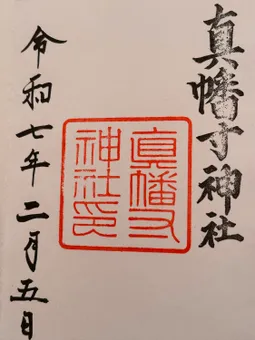 真幡寸神社
眞幡寸
神社印
令和七年二月五日